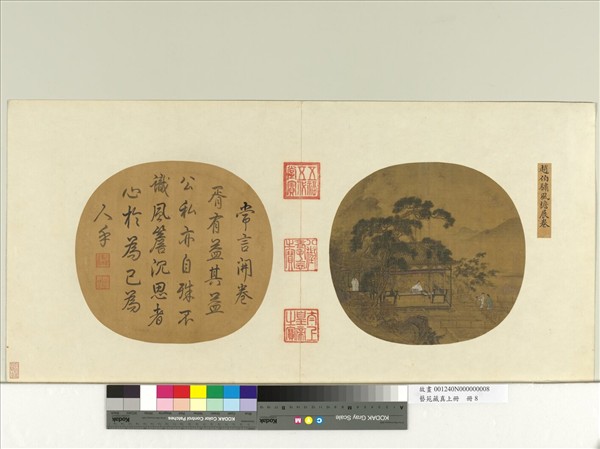 趙伯驌風檐展卷
八徵耄念之寶
太上皇帝之寶
常言開卷
胥有益其益
公私亦自殊不
識風簷沉思者
心於為己為
人乎
故畫 001240N000000008
藝苑藏真上冊 冊 8
Kodak
KODAK Color Control Patches
Kodak
KODAK Gray Scale